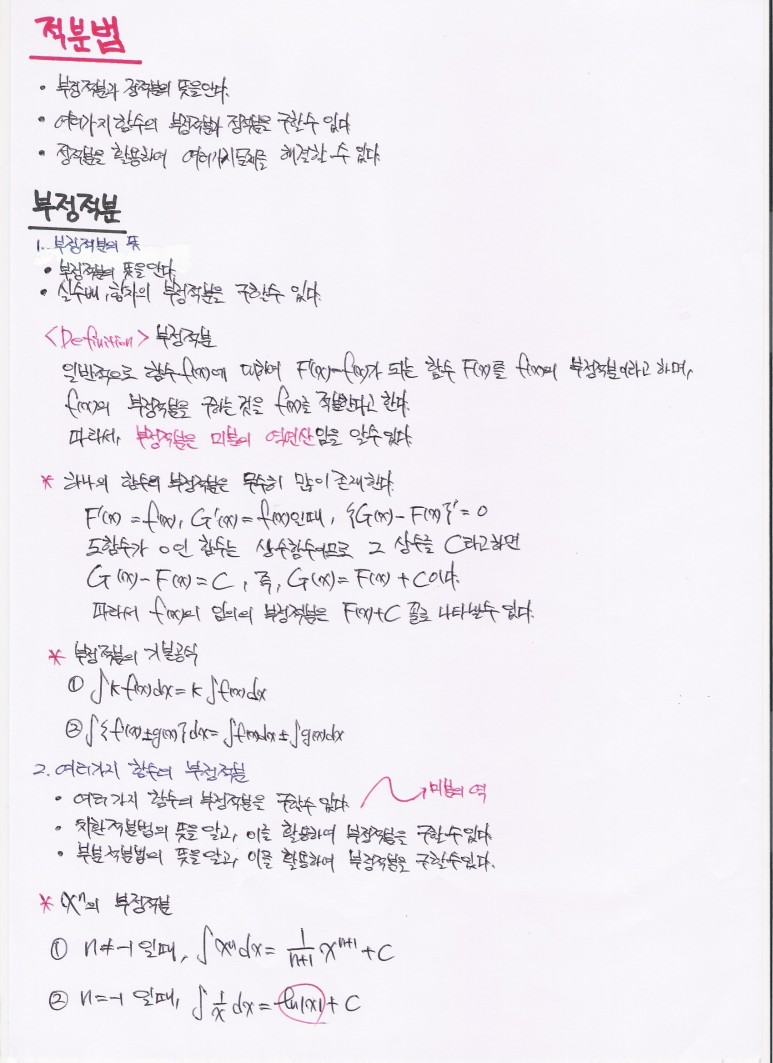 적분법
• 부정적분과 정적분의 뜻을 안다.
• 여러가지 함수의 부정적분과 정적분을 구할수 있다
• 정적분을 활용하여 여러가지 문제를 해결할 수 있다.
부정적분
1. 부정적분의 뜻
• 부정적분의 뜻을 안다.
• 실수배, 합차의 부정적분을 구할수 있다.
<Definition> 부정적분
일반적으로 함수 f(x)에 대하여 F'(x)=f(x)가 되는 함수 F(x)를 f(x)의 부정적분이라고 하며,
f(x)의 부정적분을 구하는 것을 f(x)를 적분한다고 한다.
따라서, 부정적분은 미분의 역연산임을 알수 있다.
* 하나의 함수의 부정적분은 무수히 많이 존재한다.
F'(x) = f(x), G'(x) = f(x)일때, {G(x)-F(x)}' = 0
도함수가 0인 함수는 상수함수이므로 그 상수를 C라고하면
G(x)-F(x) = C, 즉, G(x) = F(x) + C이다.
따라서 f(x)의 임의의 부정적분은 F(x)+C 꼴로 나타낼수 있다.
* 부정적분의 기본공식
① ∫k f(x)dx = k ∫f(x)dx
② ∫{f(x)±g(x)}dx = ∫f(x)dx ± ∫g(x)dx
2. 여러가지 함수의 부정적분
• 여러가지 함수의 부정적분을 구할수 있다. → 미분의 역
• 치환적분법의 뜻을 알고, 이를 활용하여 부정적분을 구할수 있다
• 부분적분법의 뜻을 알고, 이를 활용하여 부정적분을 구할수있다.
* xⁿ의 부정적분
① n≠-1 일때, ∫xⁿdx = 1/(n+1) xⁿ⁺¹ + C
② n=-1 일때, ∫1/x dx = ln|x| + C